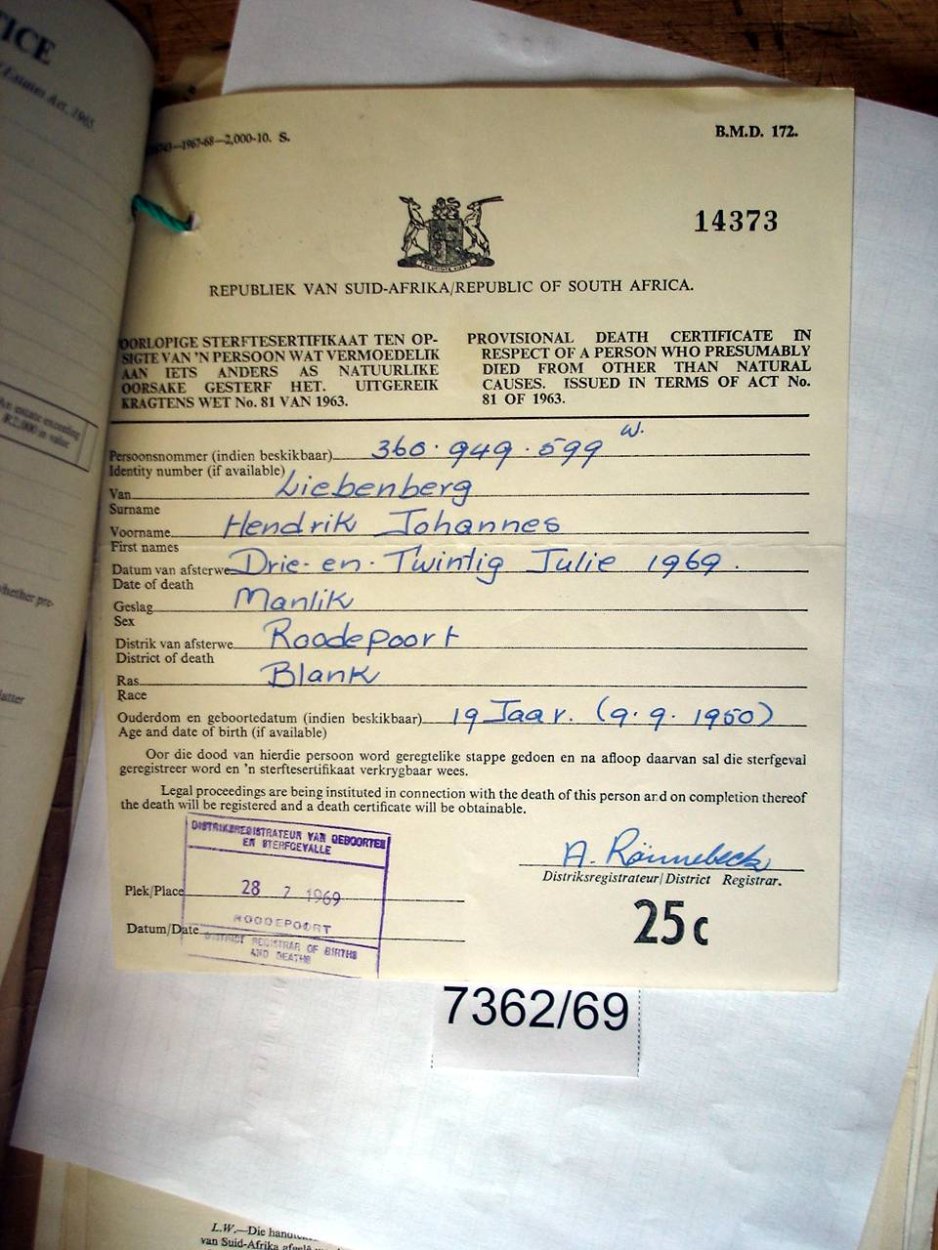 ICE
Estates Act, 1965
—1967-68—2,000-10. S.
B.M.D. 172.
14373
REPUBLIEK VAN SUID-AFRIKA/REPUBLIC OF SOUTH AFRICA.
OORLOPIGE STERFTESERTIFIKAAT TEN OP-
SIGTE VAN 'N PERSOON WAT VERMOEDELIK
AAN IETS ANDERS AS NATUURLIKE
OORSAKE GESTERF HET. UITGEREIK
KRAGTENS WET No. 81 VAN 1963.
PROVISIONAL DEATH CERTIFICATE IN
RESPECT OF A PERSON WHO PRESUMABLY
DIED FROM OTHER THAN NATURAL
CAUSES. ISSUED IN TERMS OF ACT No.
81 OF 1963.
estate exceeding
R2,000 in value
Persoonsnommer (indien beskikbaar) 360.949.599 W.
Identity number (if available)
Van Liebenberg
Surname
Voorname Hendrik Johannes
First names
Datum van afsterwe Drie-en-Twintig Julie 1969.
Date of death
Geslag Manlik
Sex
Distrik van afsterwe Roodepoort
District of death
Ras Blank
Race
Ouderdom en geboortedatum (indien beskikbaar) 19 Jaar. (9.9.1950)
Age and date of birth (if available)
whether pre-
Oor die dood van hierdie persoon word geregtelike stappe gedoen en na afloop daarvan sal die sterfgeval
geregistreer word en 'n sterftesertifikaat verkrygbaar wees.
Legal proceedings are being instituted in connection with the death of this person and on completion thereof
the death will be registered and a death certificate will be obtainable.
DISTRIKSREGISTRATEUR VAN GEBOORTES
EN STERFGEVALLE
A. Rönnebeck
Distriksregistrateur/District Registrar.
Plek/Place
28 7 1969
ROODEPOORT
Datum/Date
DISTRICT REGISTRAR OF BIRTHS
AND DEATHS
25c
7362/69
L.W.—Die
van Suid-Afrika